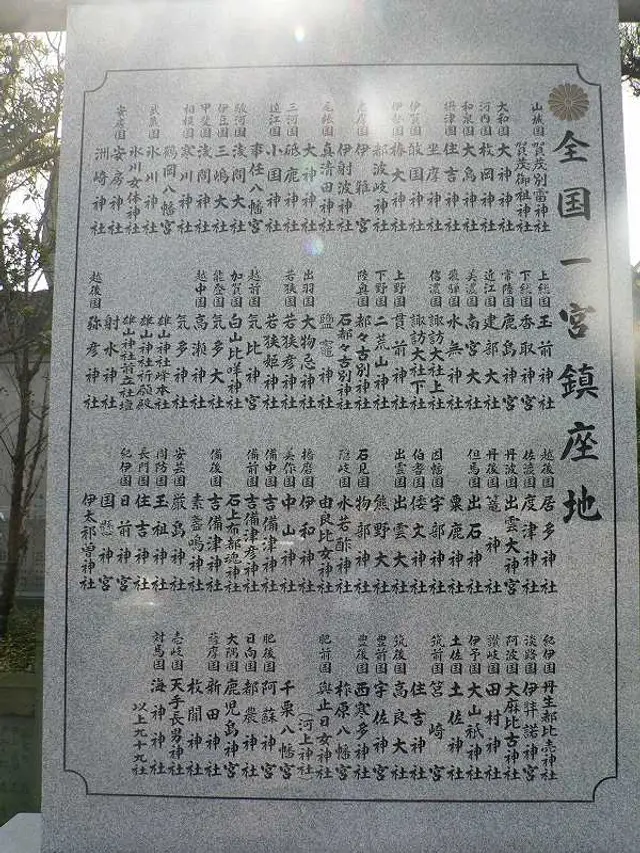 全国一宮鎮座地
山城国 賀茂別雷神社
賀茂御祖神社
大和国 大神神社
河内国 枚岡神社
和泉国 大鳥神社
摂津国 住吉神社
坐摩神社
伊賀国 敢国神社
伊勢国 椿大神社
都波岐神社
志摩国 伊雑宮
伊射波神社
尾張国 真清田神社
大神神社
三河国 砥鹿神社
遠江国 小国神社
事任八幡宮
駿河国 浅間大社
伊豆国 三嶋大社
甲斐国 浅間神社
相模国 寒川神社
鶴岡八幡宮
武蔵国 氷川神社
氷川女体神社
安房国 安房神社
洲崎神社
上総国 玉前神社
下総国 香取神宮
常陸国 鹿島神宮
近江国 建部大社
美濃国 南宮大社
飛騨国 水無神社
信濃国 諏訪大社上社
諏訪大社下社
上野国 貫前神社
下野国 二荒山神社
陸奥国 都々古別神社
石都々古別神社
鹽竈神社
出羽国 大物忌神社
若狭国 若狭彦神社
若狭姫神社
越前国 気比神宮
加賀国 白山比咩神社
能登国 気多大社
越中国 高瀬神社
気多神社
雄山神社峰本社
雄山神社祈願殿
雄山神社前立社壇
射水神社
越後国 弥彦神社
越後国 居多神社
佐渡国 度津神社
丹波国 出雲大神宮
丹後国 籠神社
但馬国 出石神社
粟鹿神社
因幡国 宇部神社
伯耆国 倭文神社
出雲国 出雲大社
熊野大社
石見国 物部神社
隠岐国 水若酢神社
由良比女神社
播磨国 伊和神社
美作国 中山神社
備中国 吉備津神社
備前国 吉備津彦神社
石上布都魂神社
備後国 吉備津神社
素盞嗚神社
安芸国 厳島神社
周防国 玉祖神社
長門国 住吉神社
紀伊国 日前神宮
国懸神宮
伊太祁曽神社
紀伊国 丹生都比売神社
淡路国 伊弉諾神宮
阿波国 大麻比古神社
讃岐国 田村神社
伊予国 大山祇神社
土佐国 土佐神社
筑前国 筥崎宮
住吉神社
筑後国 高良大社
豊前国 宇佐神宮
豊後国 西寒多神社
柞原八幡宮
肥前国 與止日女神社
（河上神社）
千栗八幡宮
肥後国 阿蘇神社
日向国 都農神社
大隅国 鹿児島神宮
薩摩国 新田神社
枚聞神社
壱岐国 天手長男神社
対馬国 海神神社
以上九十九社